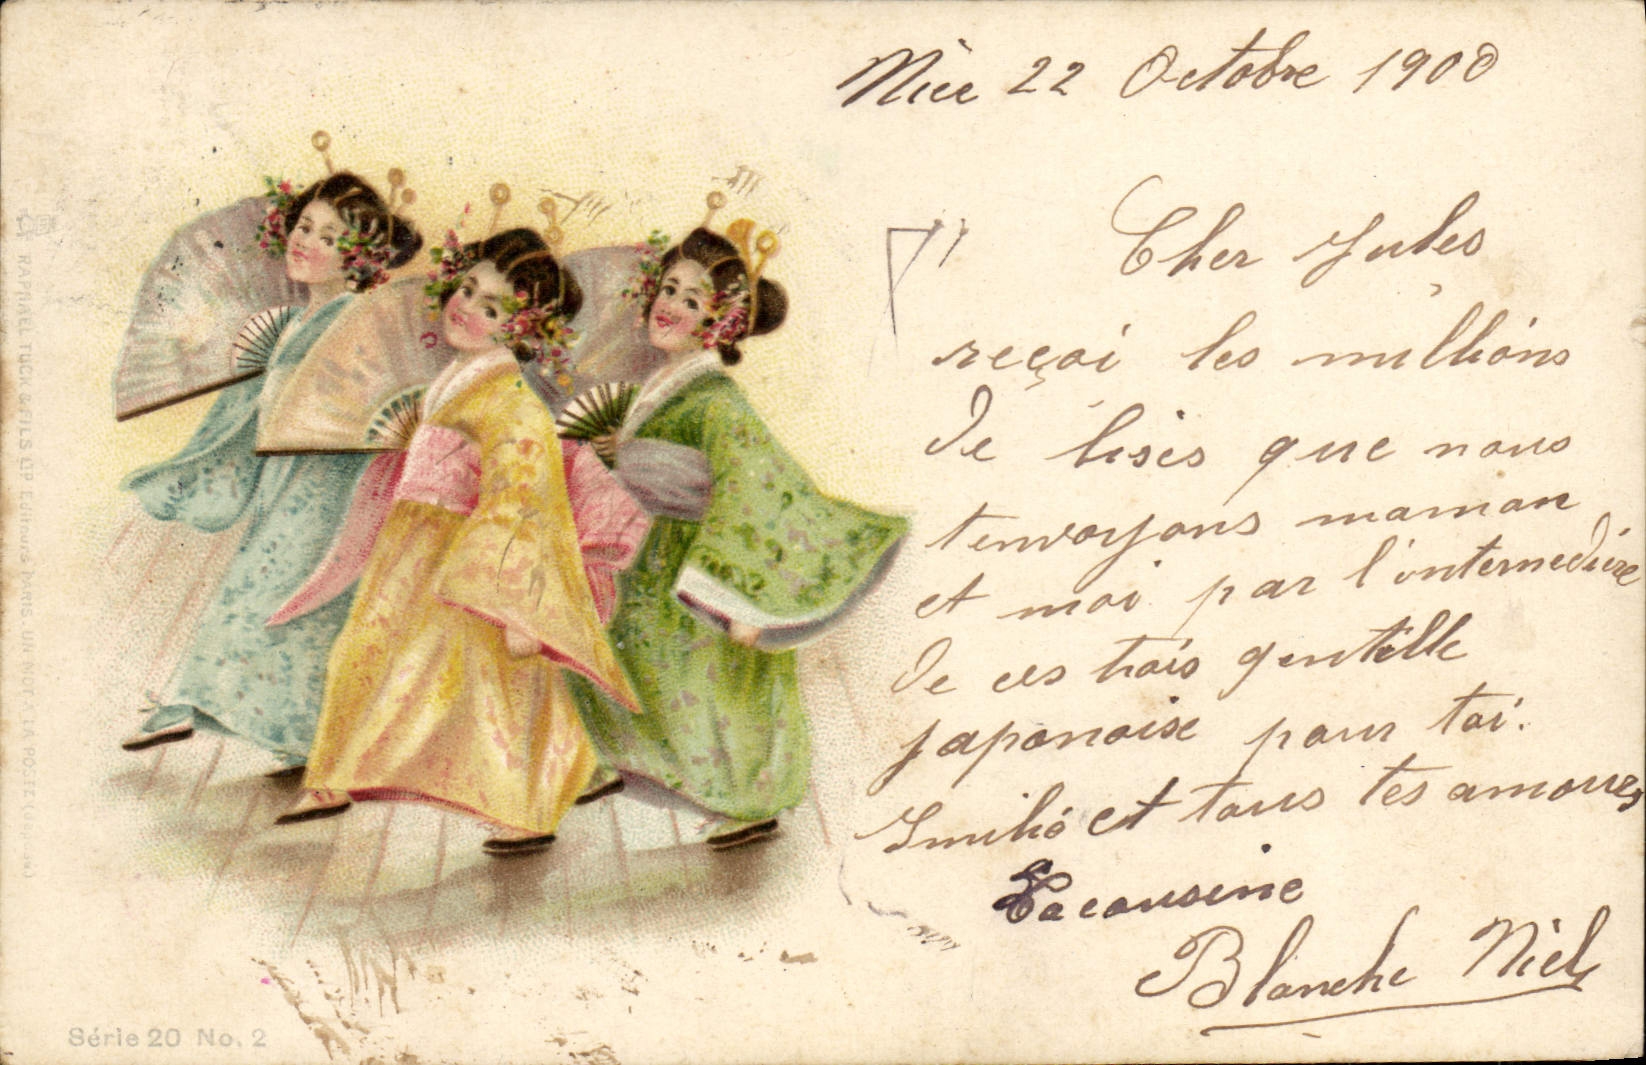 Nice 22 Octobre 1900
Cher Jules
reçoi les millions
de bises que nous
t'envoyons maman
et moi par l'intermedière
de ces trois gentille
japonaise pour toi.
et tous tes amours
Ta cousine
Blanche Niel
RAPHAEL TUCK & FILS LTD EDITEURS PARIS. UN MOT A LA POSTE
Série 20 No. 2